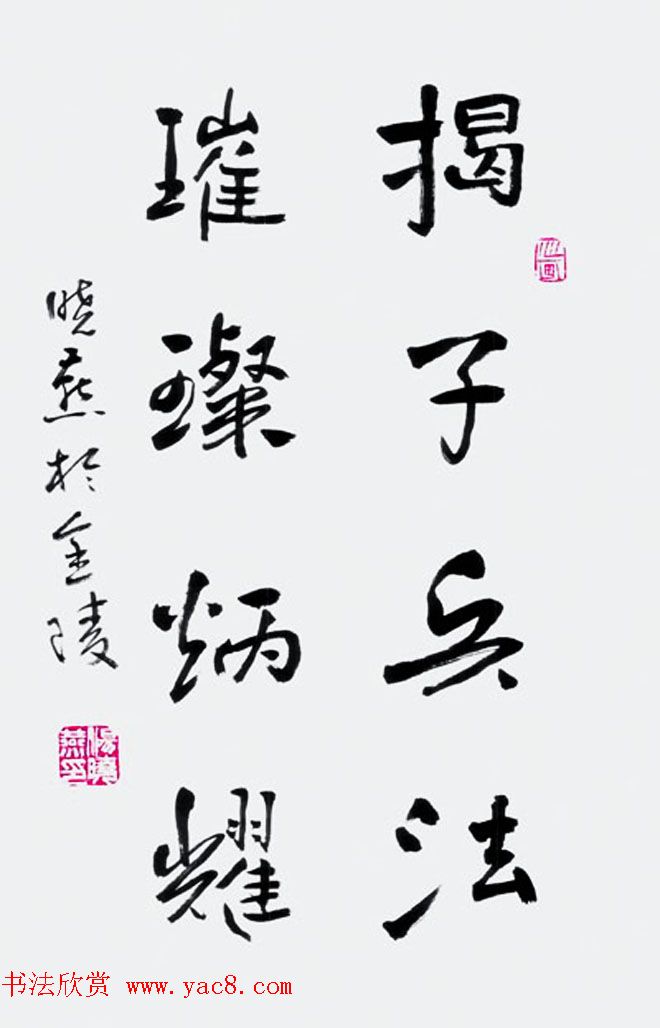 揭子兵法
璀璨炳耀
晓燕於金陵
杨晓燕印
书法欣赏 www.yac8.com